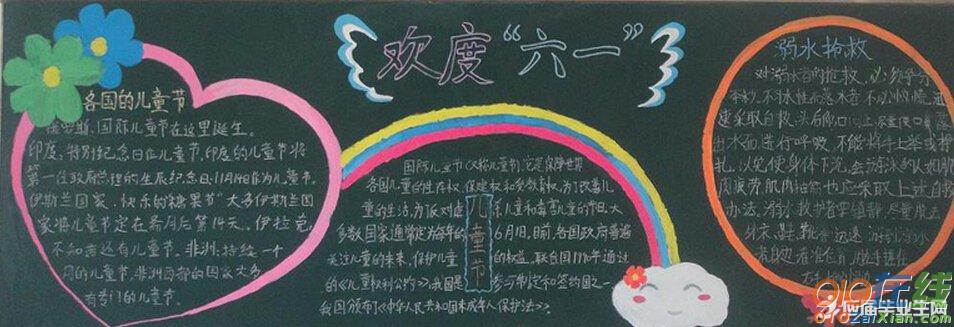 欢度“六一”
各国的儿童节
俄罗斯、国际儿童节在这里诞生。
印度,特别纪念日在儿童节,印度的儿童节将
第一任政府总理的生辰纪念日11月14日作为儿童节。
伊斯兰国家,快乐的糖果节”大多伊斯兰国
家将儿童节定在斋月后第14天。伊拉克,
不知道还有儿童节。非洲:持续一个
月的儿童节,非洲西部的国家大多
有专门的儿童节。
国际儿童节(又称儿童节),它是保障世界
各国儿童的生存权、保健权和受教育权,为了改善儿
童的生活,为反对虐 儿童 和毒害儿童的节日大
多数国家通常定为每年的 6月1日。目前,各国政府普遍
关注儿童的未来,保护儿童 的权益,联合国1990年通过
的《儿童权利公约》,我国是 参与制定和签约国之一
我国颁布了《中华人民共和国未成年人保护法》。
儿童节
溺水抢救
对溺水者的抢救,必须争分
夺秒,不习水性而落水者,不必惊慌,迅
速采取自救:头后仰口向上,尽量使口鼻露
出水面,进行呼吸,不能将手上举或挣
扎,以免使身体下沉。会游泳的人如肌
肉疲劳,肌肉抽筋也应采取上述自救
办法。溺水救护者要镇静,尽量脱去
外衣、鞋、靴等,迅速游到溺水
者附近,看准位置,用
910在线
910zaixian.com
应届毕业生网